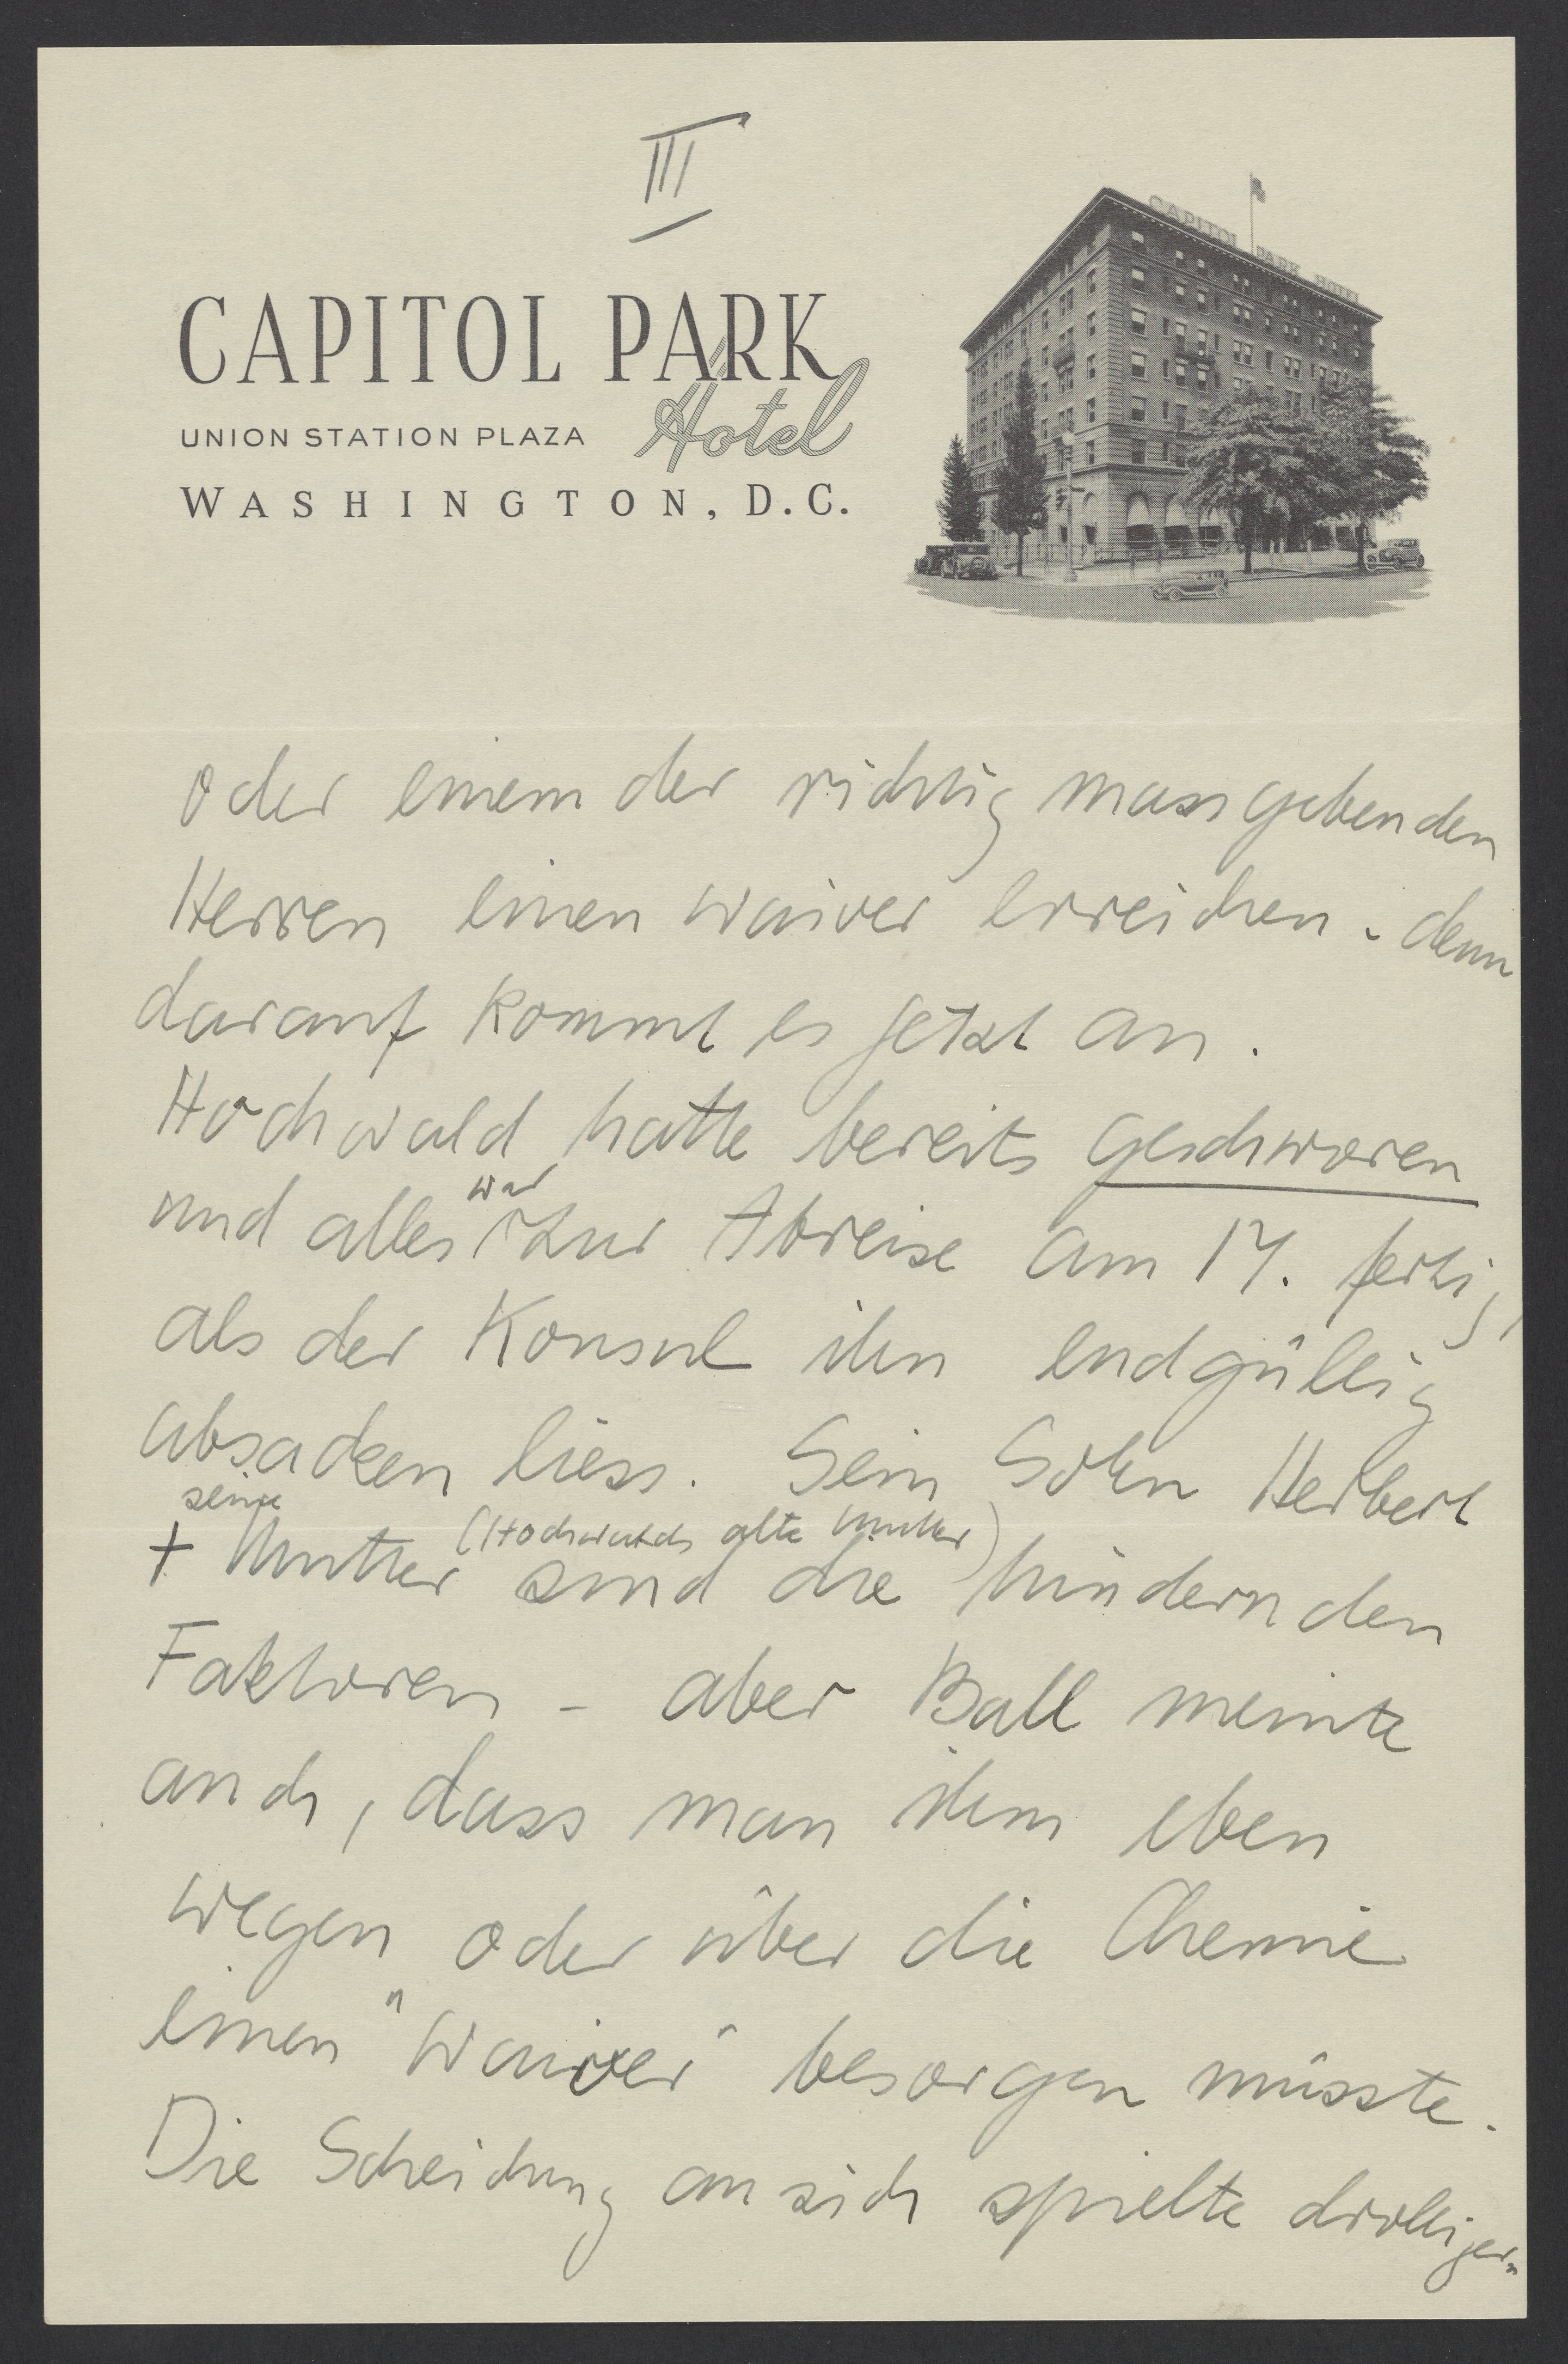 III
CAPITOL PARK
Hotel
UNION STATION PLAZA
WASHINGTON, D.C.
CAPITOL PARK HOTEL
oder einem der richtig massgebenden
Herren einen waiver erreichen - denn
darauf kommt es jetzt an.
Hochwald hatte bereits geschworen
war
und alles zur Abreise am 17. fertig,
als der Konsul ihn endgültig
absacken liess. Sein Sohn Herbert
seine (Hochwalds alte Mutter)
+ Mutter sind die hindernden
Faktoren - aber Ball meinte
auch, dass man ihm eben
wegen oder über die Chemie
einen "Waiver" besorgen müsste.
Die Scheidung an sich spielte drolliger-